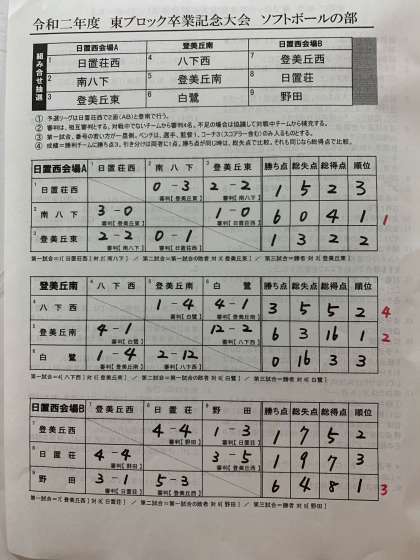 令和二年度 東ブロック卒業記念大会 ソフトボールの部
組み合せ抽選
日置荘西会場A 登美丘南 日置荘西会場B
1 日置荘西 4 八下西 7 登美丘西
2 南八下 5 登美丘南 8 日置荘
3 登美丘東 6 白鷺 9 野田
① 予選リーグは日置荘西で2面(AB)と登南で行う。
② 審判は、相互審判とする。対戦中でないチームから審判4名。不足の場合は協議して対戦中チームから補充する。
③ 第一試合、番号の若い方が一塁側。ベンチは、選手、監督1、コーチ3(スコアラー含む)のみ入るものとする。
④ 成績=勝利チームに勝ち点3、引き分けは両者に1点。勝ち点が同じ時は、総失点で比較。それも同じなら総得点で比較。
日置荘西会場A 1 日置荘西 2 南八下 3 登美丘東 勝ち点 総失点 総得点 順位
1 日置荘西 0-3 2-2 1 5 2 3
審判【登美丘東】 審判【南八下】
2 南八下 3-0 1-0 6 0 4 1 1
審判【登美丘東】 審判【日置荘西】
3 登美丘東 2-2 0-1 1 3 2 2
審判【南八下】 審判【日置荘西】
第一試合=1【日置荘西】対2【南八下】 / 第二試合=第一試合の敗者 対3【登美丘東】 / 第三試合=勝者 対3【登美丘東】
登美丘南 4 八下西 5 登美丘南 6 白鷺 勝ち点 総失点 総得点 順位
4 八下西 1-4 4-1 3 5 5 2 4
審判【白鷺】 審判【登美丘南】
5 登美丘南 4-1 12-2 6 3 16 1 2
審判【白鷺】 審判【八下西】
6 白鷺 1-4 2-12 0 16 3 3
審判【登美丘南】 審判【八下西】
第一試合=4【八下西】対5【登美丘南】 / 第二試合=第一試合の敗者 対6【白鷺】 / 第三試合=勝者 対6【白鷺】
日置荘西会場B 7 登美丘西 8 日置荘 9 野田 勝ち点 総失点 総得点 順位
7 登美丘西 4-4 1-3 1 7 5 2
審判【野田】 審判【日置荘】
8 日置荘 4-4 3-5 1 9 7 3
審判【野田】 審判【登美丘西】
9 野田 3-1 5-3 6 4 8 1 3
審判【日置荘】 審判【登美丘西】
第一試合=7【登美丘西】対8【日置荘】 / 第二試合=第一試合の敗者 対9【野田】 / 第三試合=勝者 対9【野田】